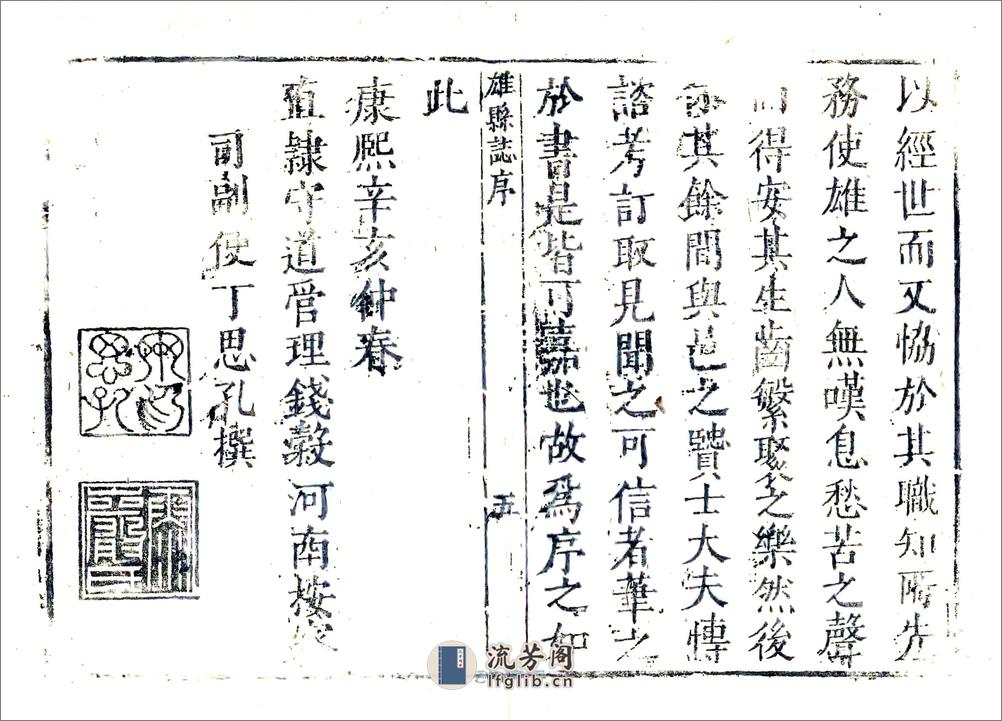 以經世而又恊於其職知所先
務使雄之人無嘆息愁苦之聲
而得安其生齒繁聚之樂然後
及其餘間與邑之賢士大夫博
諮考訂取見聞之可信者筆之
於書是皆可嘉也故爲序之如
雄縣誌序
五
此
康熙辛亥仲春
直隸守道管理錢穀河南按察
司副使丁思孔撰
流芳阁
lfglib.cn